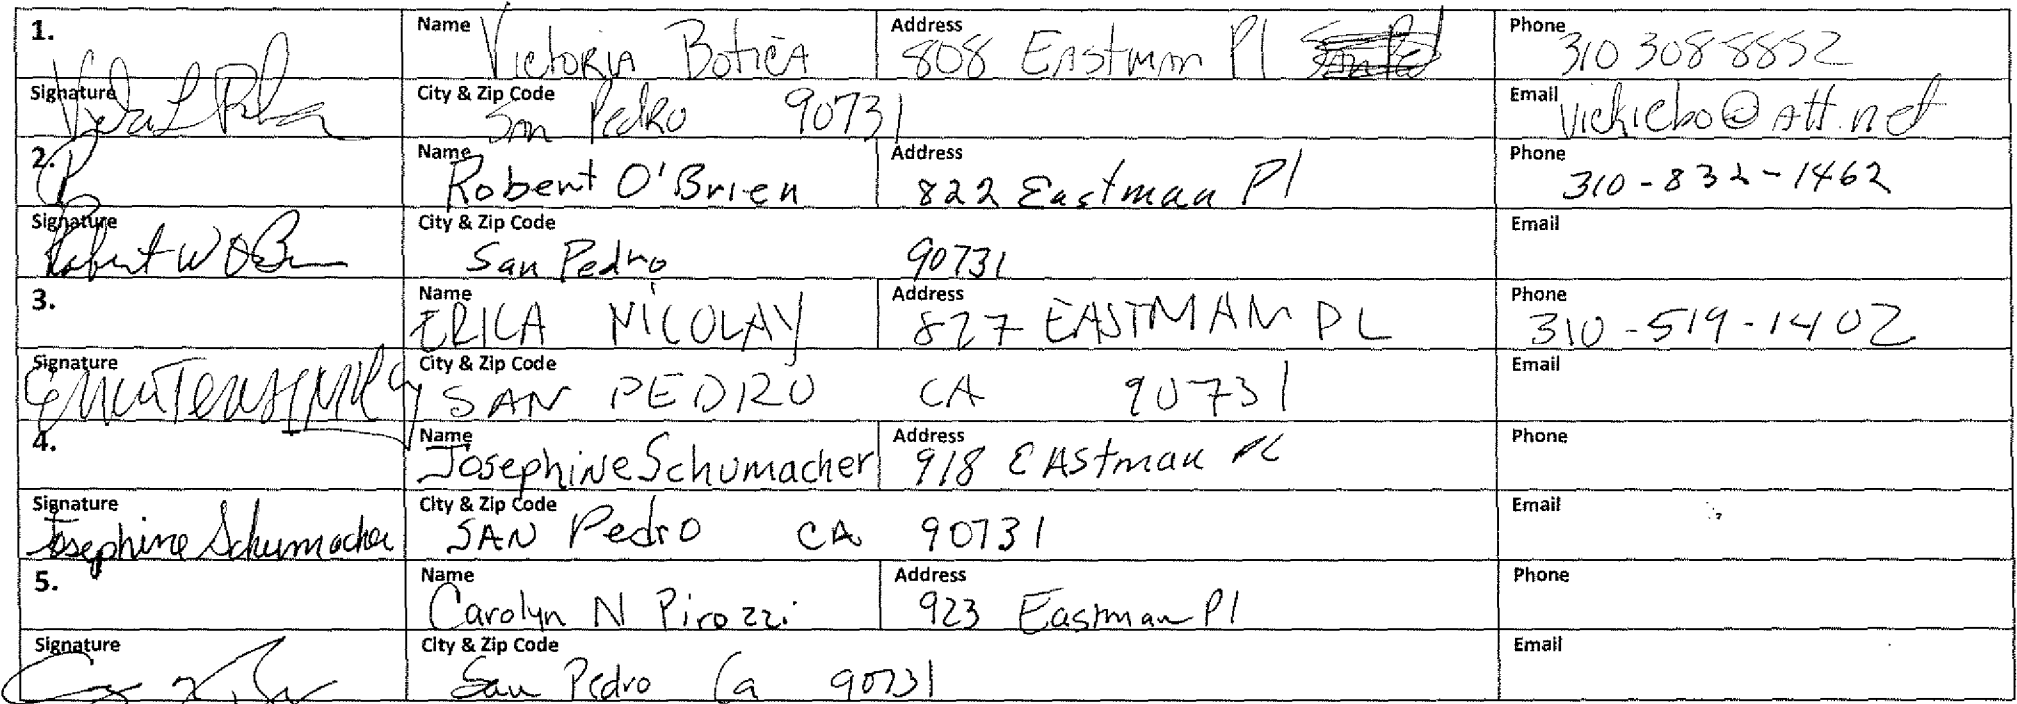 1. Name Victoria Botica Address 808 Eastman Pl Phone 310 308 8852
Signature City & Zip Code San Pedro 90731 Email vickiebo@att.net
2. Name Robert O'Brien Address 822 Eastman Pl Phone 310-832-1462
Signature Robert W OB City & Zip Code San Pedro 90731 Email
3. Name ERICA NICOLAY Address 827 EASTMAN PL Phone 310-519-1402
Signature City & Zip Code SAN PEDRO CA 90731 Email
4. Name Josephine Schumacher Address 918 EAstman Pl Phone
Signature Josephine Schumacher City & Zip Code SAN PedrO CA 90731 Email
5. Name Carolyn N Pirozzi Address 923 Eastman Pl Phone
Signature City & Zip Code San Pedro Ca 90731 Email